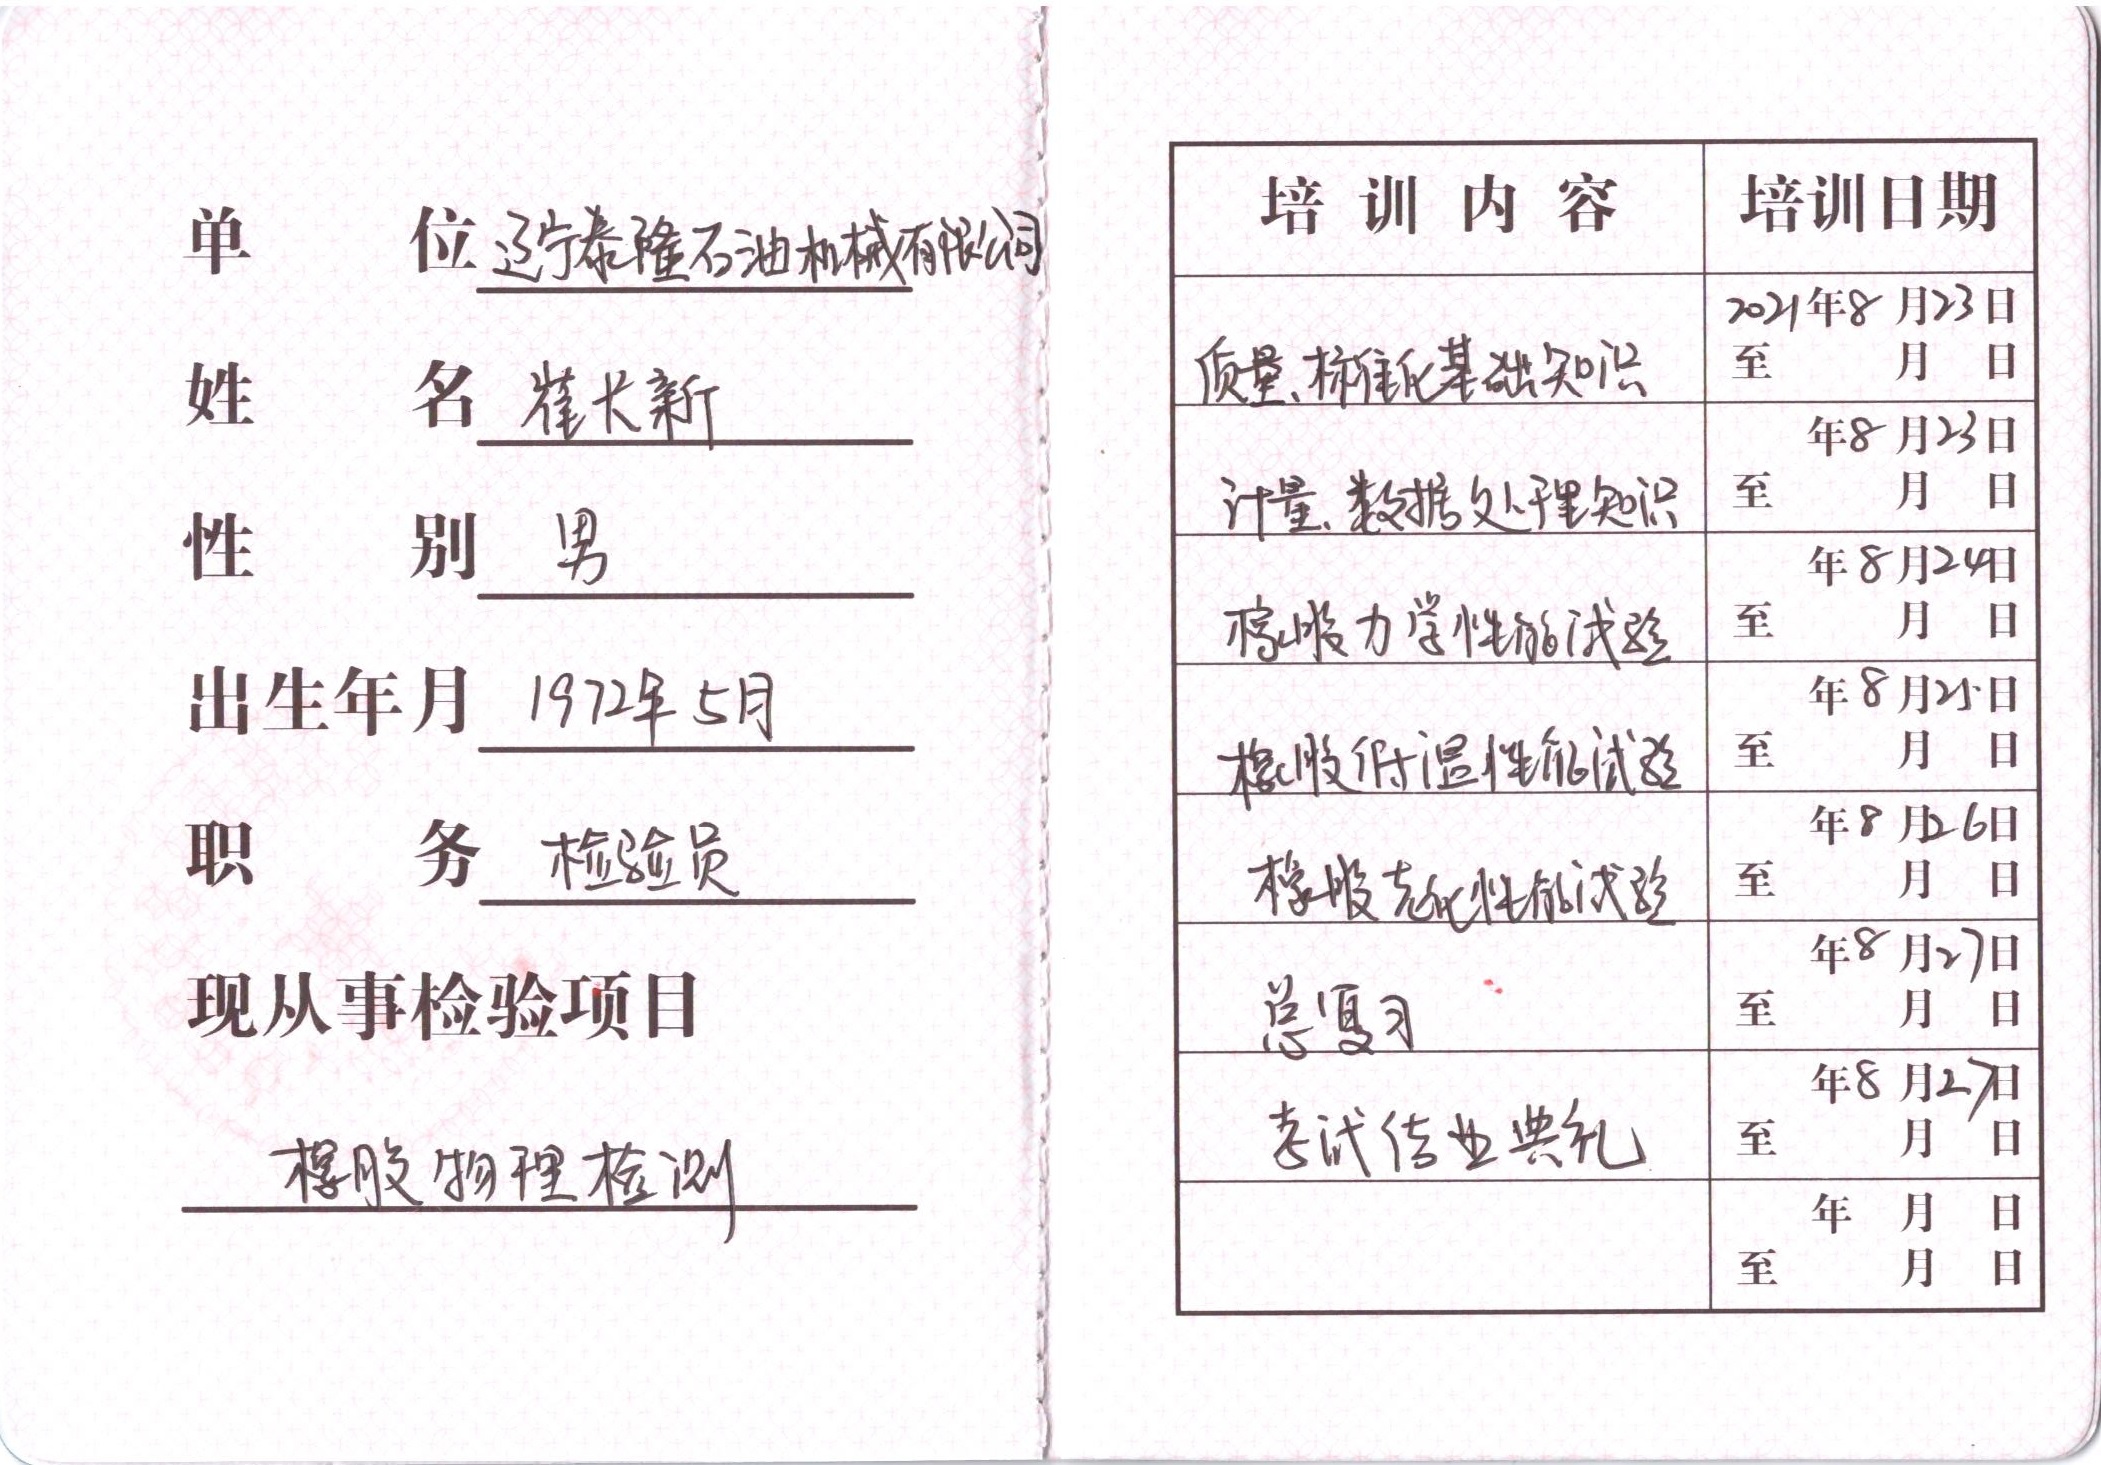 单位 辽宁泰隆石油机械有限公司
姓名 崔长新
性别 男
出生年月 1972年5月
职务 检验员
现从事检验项目
橡胶物理检测
培训内容 培训日期
2021年8月23日
质量、标准化基础知识 至 月 日
年8月23日
计量、数据处理知识 至 月 日
年8月24日
橡胶力学性能试验 至 月 日
年8月25日
橡胶低温性能试验 至 月 日
年8月26日
橡胶老化性能试验 至 月 日
年8月27日
总复习 至 月 日
年8月27日
考试结业典礼 至 月 日
年 月 日
至 月 日